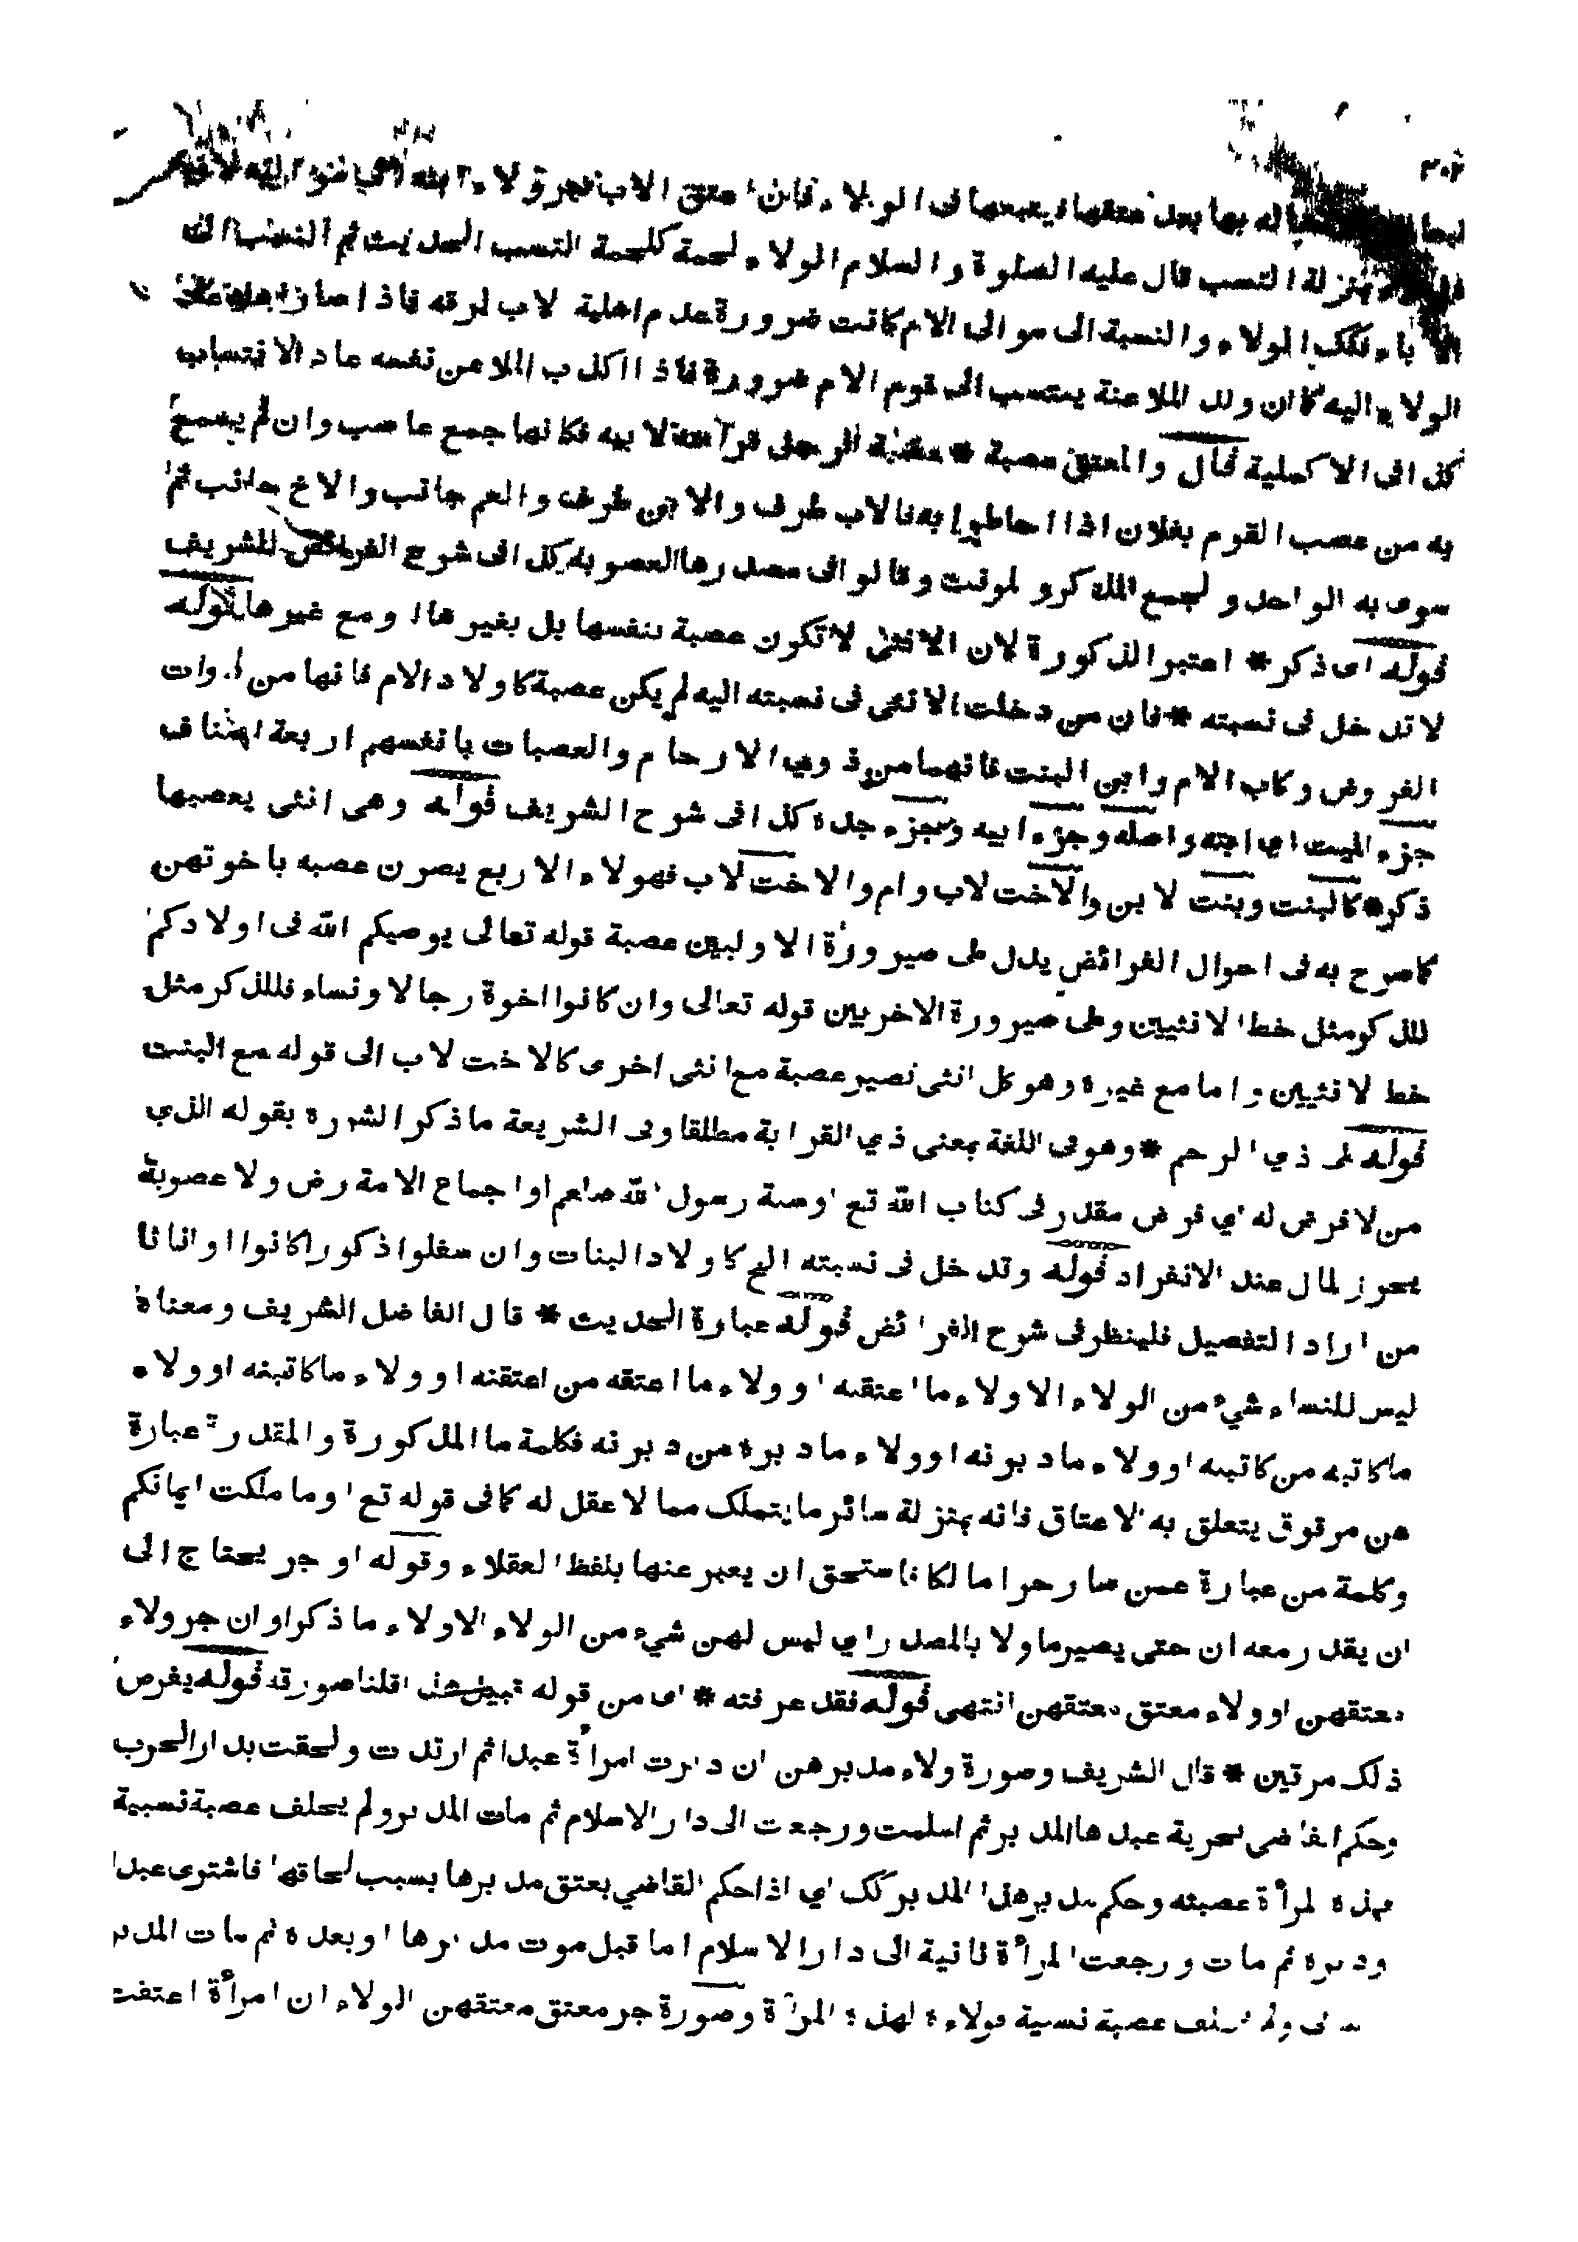 ٣٠٢
لها بها بعد عتقها ويتبعها فى الولاء فان اعتق الاب جر ولاء ابنه الى
بمنزلة النسب قال عليه الصلوة والسلام الولاء لحمة كلحمة النسب الحديث ثم النسب الى
الآباء فكذلك الولاء والنسبة الى موالى الام كانت ضرورة عدم اهلية الاب لرقه فاذا صار اهلا عاد
الولاء اليه كان ولد الملاعنة ينتسب الى قوم الام ضرورة فاذا اكذب الملاعن نفسه عاد الانتساب
كذا فى الاكملية قال والمعتق عصبة * عصبة الرجل قرابته لابيه فكانها جمع عاصب وان لم يسمع
به من عصب القوم بفلان اذا احاطوا به فالاب طرف والابن طرف والعم جانب والاخ جانب ثم
سوى به الواحد والجمع المذكر والمونث وقالوا فى مصدرها العصوبة كذا فى شرح الفرائض للشريف
قوله اى ذكر * اعتبر الذكورة لان الانثى لا تكون عصبة بنفسها بل بغيرها او مع غيرها قوله
لا تدخل فى نسبته * فان من دخلت الانثى فى نسبته اليه لم يكن عصبة كاولاد الام فانها من ذوات
الفروض وكاب الام وابن البنت فانهما من ذوي الارحام والعصبات بانفسهم اربعة اصناف
جزء الميت اي ابنه واصله وجزء ابيه وجزء جده كذا فى شرح الشريف قوله وهى انثى يعصبها
ذكر * كالبنت وبنت الابن والاخت لاب وام والاخت لاب فهولاء الاربع يصرن عصبه باخوتهن
كما صرح به فى احوال الفرائض يدل على صيرورة الاوليين عصبة قوله تعالى يوصيكم الله فى اولادكم
للذكر مثل حظ الانثيين وعلى صيرورة الاخريين قوله تعالى وان كانوا اخوة رجالا ونساء فللذكر مثل
حظ الانثيين واما مع غيره وهو كل انثى تصير عصبة مع انثى اخرى كالاخت لاب الى قوله مع البنت
قوله لمه ذي الرحم * وهو فى اللغة بمعنى ذي القرابة مطلقا وفى الشريعة ما ذكر الشره بقوله الذي
من لا فرض له اي فرض مقدر فى كتاب الله تع او سنة رسول الله صلعم او اجماع الامة رض ولا عصوبة
يحرز المال عند الانفراد قوله وتدخل فى نسبته الخ كاولاد البنات وان سفلوا ذكورا كانوا او اناثا
من اراد التفصيل فلينظر فى شرح الفرائض قوله عبارة الحديث * قال الفاضل الشريف ومعناه
ليس للنساء شيء من الولاء الا ولاء ما اعتقنه او ولاء ما اعتقه من اعتقنه او ولاء ما كاتبنه او ولاء
ما كاتبه من كاتبنه او ولاء ما دبرنه او ولاء ما دبره من دبرنه فكلمة ما المذكورة والمقدرة عبارة
عن مرقوق يتعلق به الاعتاق فانه بمنزلة سائر ما يتملك مما لا عقل له كما فى قوله تع او ما ملكت ايمانكم
وكلمة من عبارة عمن صار حرا مالكا فاستحق ان يعبر عنها بلفظ العقلاء وقوله او جر يحتاج الى
ان يقدر معه ان حتى يصير ماولا بالمصدر اي ليس لهن شيء من الولاء الا ولاء ما ذكر او ان جر ولاء
معتقهن او ولاء معتق معتقهن انتهى قوله فقد عرفته * اى من قوله قبيل هذا قلنا صورته قوله يفرض
ذلك مرتين * قال الشريف وصورة ولاء مدبرهن ان دبرت امرأة عبدا ثم ارتدت ولحقت بدار الحرب
وحكم القاضى بحرية عبدها المدبر ثم اسلمت ورجعت الى دار الاسلام ثم مات المدبر ولم يخلف عصبة نسبية
فهذه المرأة عصبته وحكم مدبر هذا المدبر كذلك اي اذا حكم القاضي بعتق مدبرها بسبب لحاقها فاشترى عبدا
ودبره ثم مات ورجعت المرأة ثانية الى دار الاسلام اما قبل موت مدبرها او بعده ثم مات المدبر
الثانى ولم يخلف عصبة نسبية فولاءه لهذه المرأة وصورة جر معتق معتقهن الولاء ان امرأة اعتقت